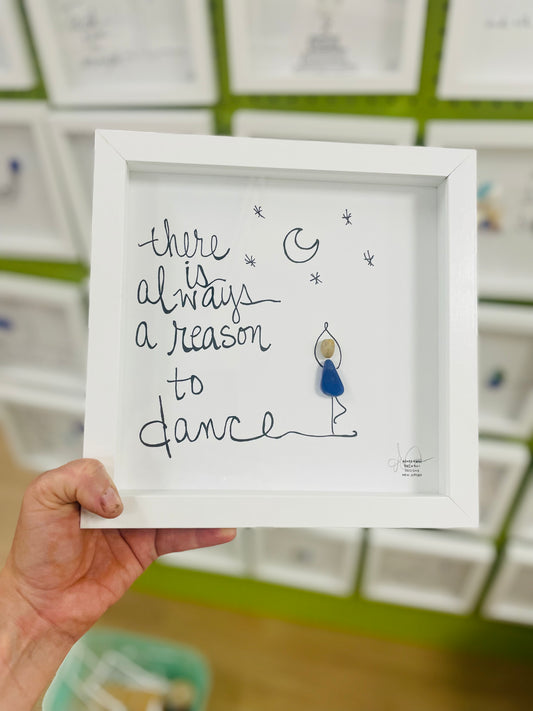 there
is
always
a reason
to
dance